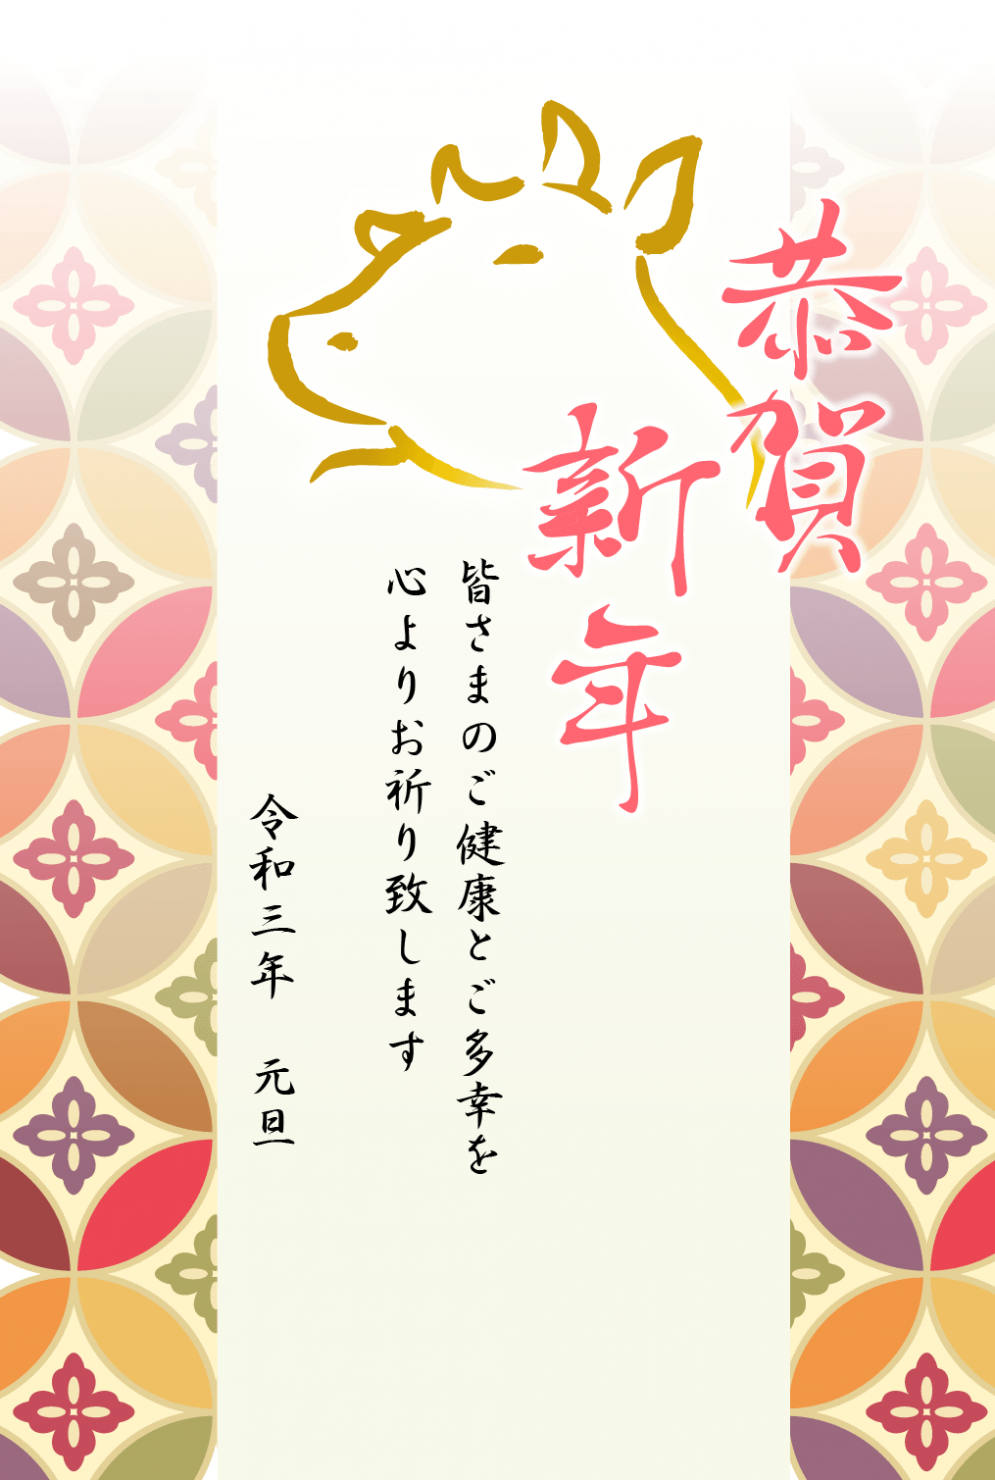 恭賀
新年
皆さまのご健康とご多幸を
心よりお祈り致します
令和三年　元旦